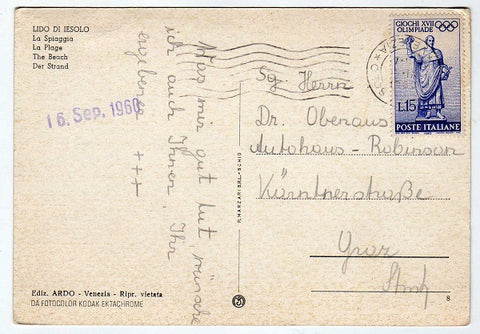 LIDO DI IESOLO
La Spiaggia
La Plage
The Beach
Der Strand
16. Sep. 1960
Was mir gut tut, wünsche
ich auch Ihnen, Ihr
ergebener +++
P. MARZARI S.R.L. - SCHIO
Ediz. ARDO - Venezia - Ripr. vietata
DA FOTOCOLOR KODAK EKTACHROME
GIOCHI XVII
OLIMPIADE
L.15
POSTE ITALIANE
Sg. Herrn
Dr. Obenaus
Autohaus - Robinson
Kärntnerstraße
Graz
8